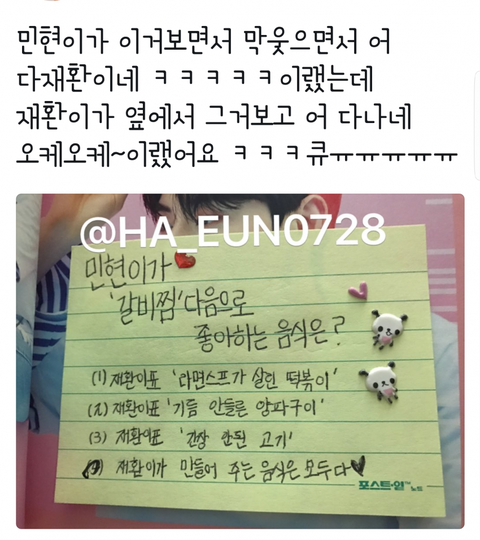 민현이가 이거보면서 막웃으면서 어
다재환이네 ㅋㅋㅋㅋㅋ이랬는데
재환이가 옆에서 그거보고 어 다나네
오케오케~이랬어요 ㅋㅋㅋ큐ㅠㅠㅠㅠㅠ
@HA_EUN0728
민현이가
'갈비찜'다음으로
좋아하는 음식은?
(1) 재환이표 '라면스프가 살린 떡볶이'
(2) 재환이표 '기름 안두른 양파구이'
(3) 재환이표 '간장 안된 고기'
재환이가 만들어 주는 음식은 모두다♥
포스트-잇™노트